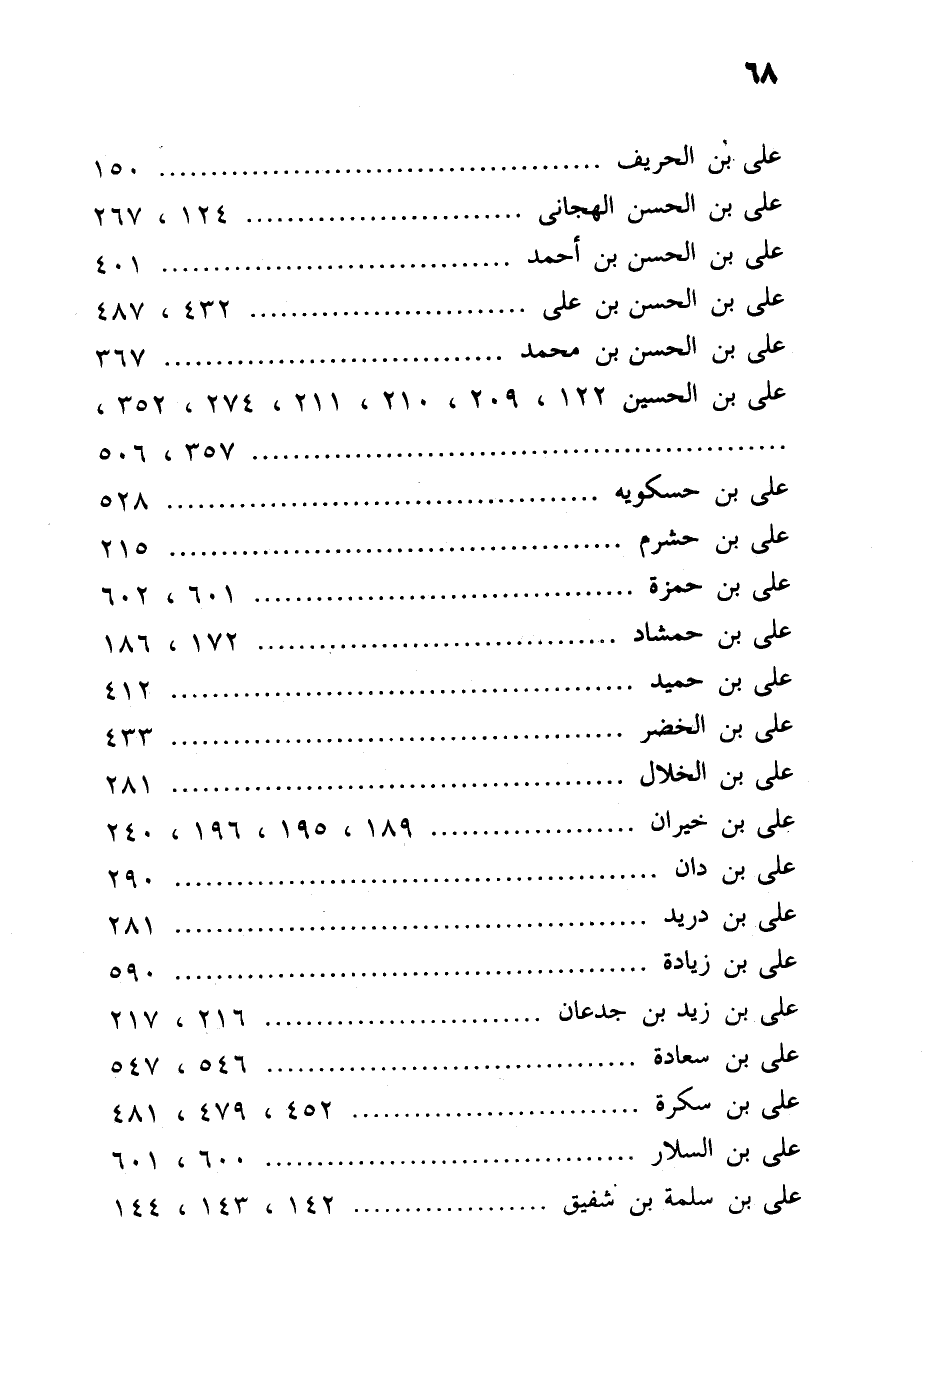 ٦٨
على بن الحريف ........................................... ١٥٠
على بن الحسن الهجانى ........................... ١٢٤ ، ٢٦٧
على بن الحسن بن أحمد .................................. ٤٠١
على بن الحسن بن على ........................... ٤٣٢ ، ٤٨٧
على بن الحسن بن محمد ................................. ٣٦٧
على بن الحسين ١٢٢ ، ٢٠٩ ، ٢١٠ ، ٢١١ ، ٢٧٤ ، ٣٥٢ ،
.................................................... ٣٥٧ ، ٥٠٦
على بن حسكويه .......................................... ٥٢٨
على بن حشرم ............................................ ٢١٥
على بن حمزة ..................................... ٦٠١ ، ٦٠٢
على بن حمشاد ................................... ١٧٢ ، ١٨٦
على بن حميد ............................................. ٤١٢
على بن الخضر ............................................ ٤٣٣
على بن الخلال ............................................ ٢٨١
على بن خيران .................... ١٨٩ ، ١٩٥ ، ١٩٦ ، ٢٤٠
على بن دان ............................................... ٢٩٠
على بن دريد .............................................. ٢٨١
على بن زيادة .............................................. ٥٩٠
على بن زيد بن جدعان ........................... ٢١٦ ، ٢١٧
على بن سعادة .................................... ٥٤٦ ، ٥٤٧
على بن سكرة ............................ ٤٥٢ ، ٤٧٩ ، ٤٨١
على بن السلار .................................... ٦٠٠ ، ٦٠١
على بن سلمة بن شفيق ................... ١٤٢ ، ١٤٣ ، ١٤٤